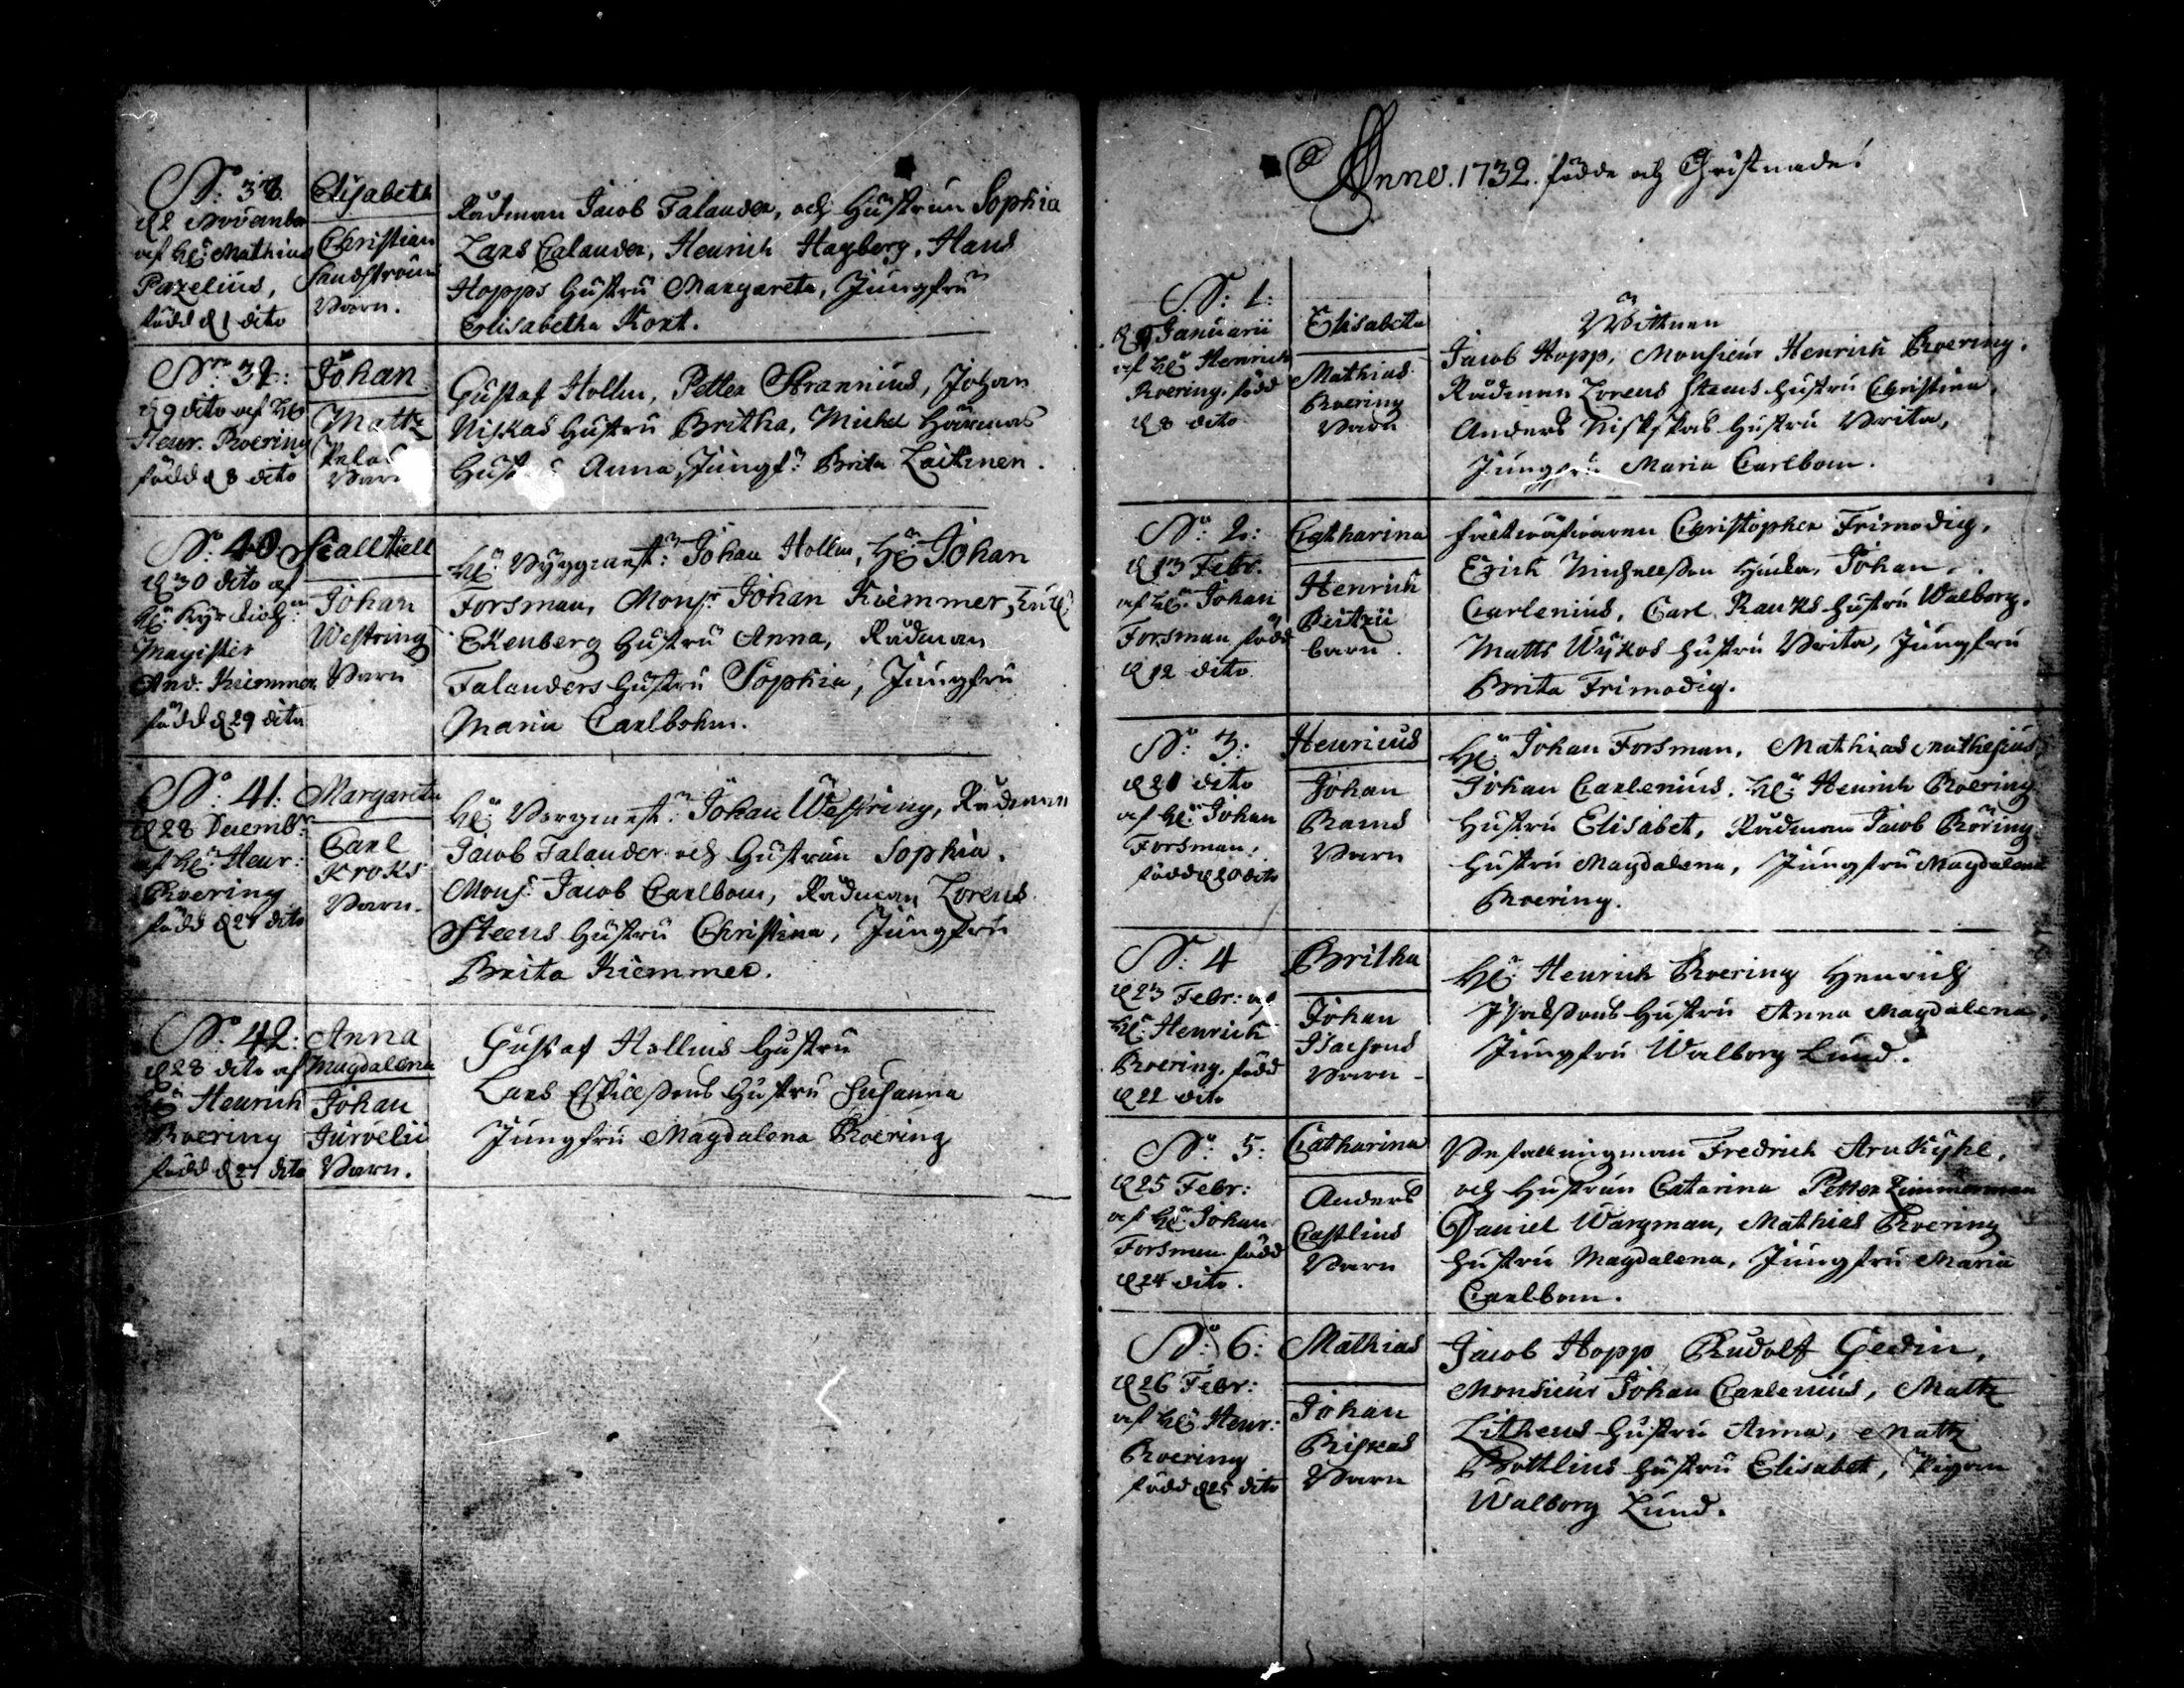 No: 38.
d 2 November
af hr: Mathias
Pazelius,
född d 1 dito
Elisabeth
Christian
Sundström
Barn.
Rådman Jacob Falander, och Hustrun Sophia
Lars Calander, Henrich Hagberg, Hans
Hopps hustru Margareta, Jungfru
Elisabetha Kort.
No: 39:
d 9 dito af hr
Henr. Roering
född d 8 dito
Johan
Mattz
Barn
Gustaf Hollm, Petter Strannius, Johan
Niskas hustru Britha, Michel Härmas
Hustru Anna, Jungf: Brita Laitinen.
No: 40
d 30 dito af
hr: Kyrckioh:
Magister
And: Kiemmer
född d 29 dito
Johan
Westring
Barn
hr: Byggmest: Johan Hollm, hr: Johan
Forsman, Mons: Johan Kiemmer,
Ekenberg hustru Anna, Rådman
Falanders hustru Sophia, Jungfru
Maria Carlbohm.
No: 41:
d 28 Decemb:
af hr: Henr:
Roering
född d 27 dito
Margareta
Carl
Kroks
Barn.
hr: Borgmest: Johan Westring, Rådman
Jacob Falander och Hustrun Sophia.
Mons: Jacob Carlbom, Rådman Lorens
Steens hustru Christina, Jungfru
Brita Kiemmer.
No: 42:
d 28 dito af
hr Henrich
Roering
född d 27 dito
Anna
Magdalena
Johan
Jurvelii
Barn.
Gustaf Hollms hustru
Lars Eskilssons hustru Susanna
Jungfru Magdalena Roering
Anno. 1732. födde och Christnade:
No: 1:
d 9 Januarii
af hr: Henrich
Roering, född
d 8 dito
Elisabeta
Mathias
Roering
Barn
Wittnen
Jacob Hopp, Monsieur Henrich Roering.
Rådman Lorens Steens hustru Christina,
Anders Niskas hustru Brita,
Jungfru Maria Carlbom.
No: 2:
d 13 Febr:
af hr: Johan
Forsman född
d 12 dito
Catharina
Henrich
barn.
Christopher Frimodig,
Erich Michelsson Johan
Carlenius, Carl Rauks hustru Walborg.
Matts Wykos hustru Brita, Jungfru
Brita Frimodig.
No: 3:
d 21 dito
af hr: Johan
Forsman,
född d 20 dito
Henricus
Johan
Rams
Barn
hr: Johan Forsman, Mathias Mathesius,
Johan Carlenius. hr: Henrich Roering
hustru Elisabet, Rådman Jacob Röring
hustru Magdalena, Jungfru Magdalena
Roering.
No: 4
d 23 Febr: af
hr: Henrich
Roering, född
d 22 dito
Britha
Johan
Isacsons
Barn
hr: Henrich Roering Henrich
Isakssons hustru Anna Magdalena,
Jungfru Walborg Lund.
No: 5:
d 25 Febr:
af hr: Johan
Forsman född
d 24 dito.
Catharina
Anders
Castlins
Barn
Befallningsman Fredrich Arnkyhl,
och hustrun Catarina Petter Zimmerman
Daniel Wargman, Mathias Roering
hustru Magdalena, Jungfru Maria
Carlbom.
No: 6:
d 26 Febr:
af hr: Henr:
Roering
född d 25 dito
Mathias
Johan
Riskas
Barn
Jacob Hopp Rudolff Gedin,
Monsieur Johan Carlenius, Mattz
Lithens hustru Anna, Mattz
Bottlins hustru Elisabet, Pigan
Walborg Lund.